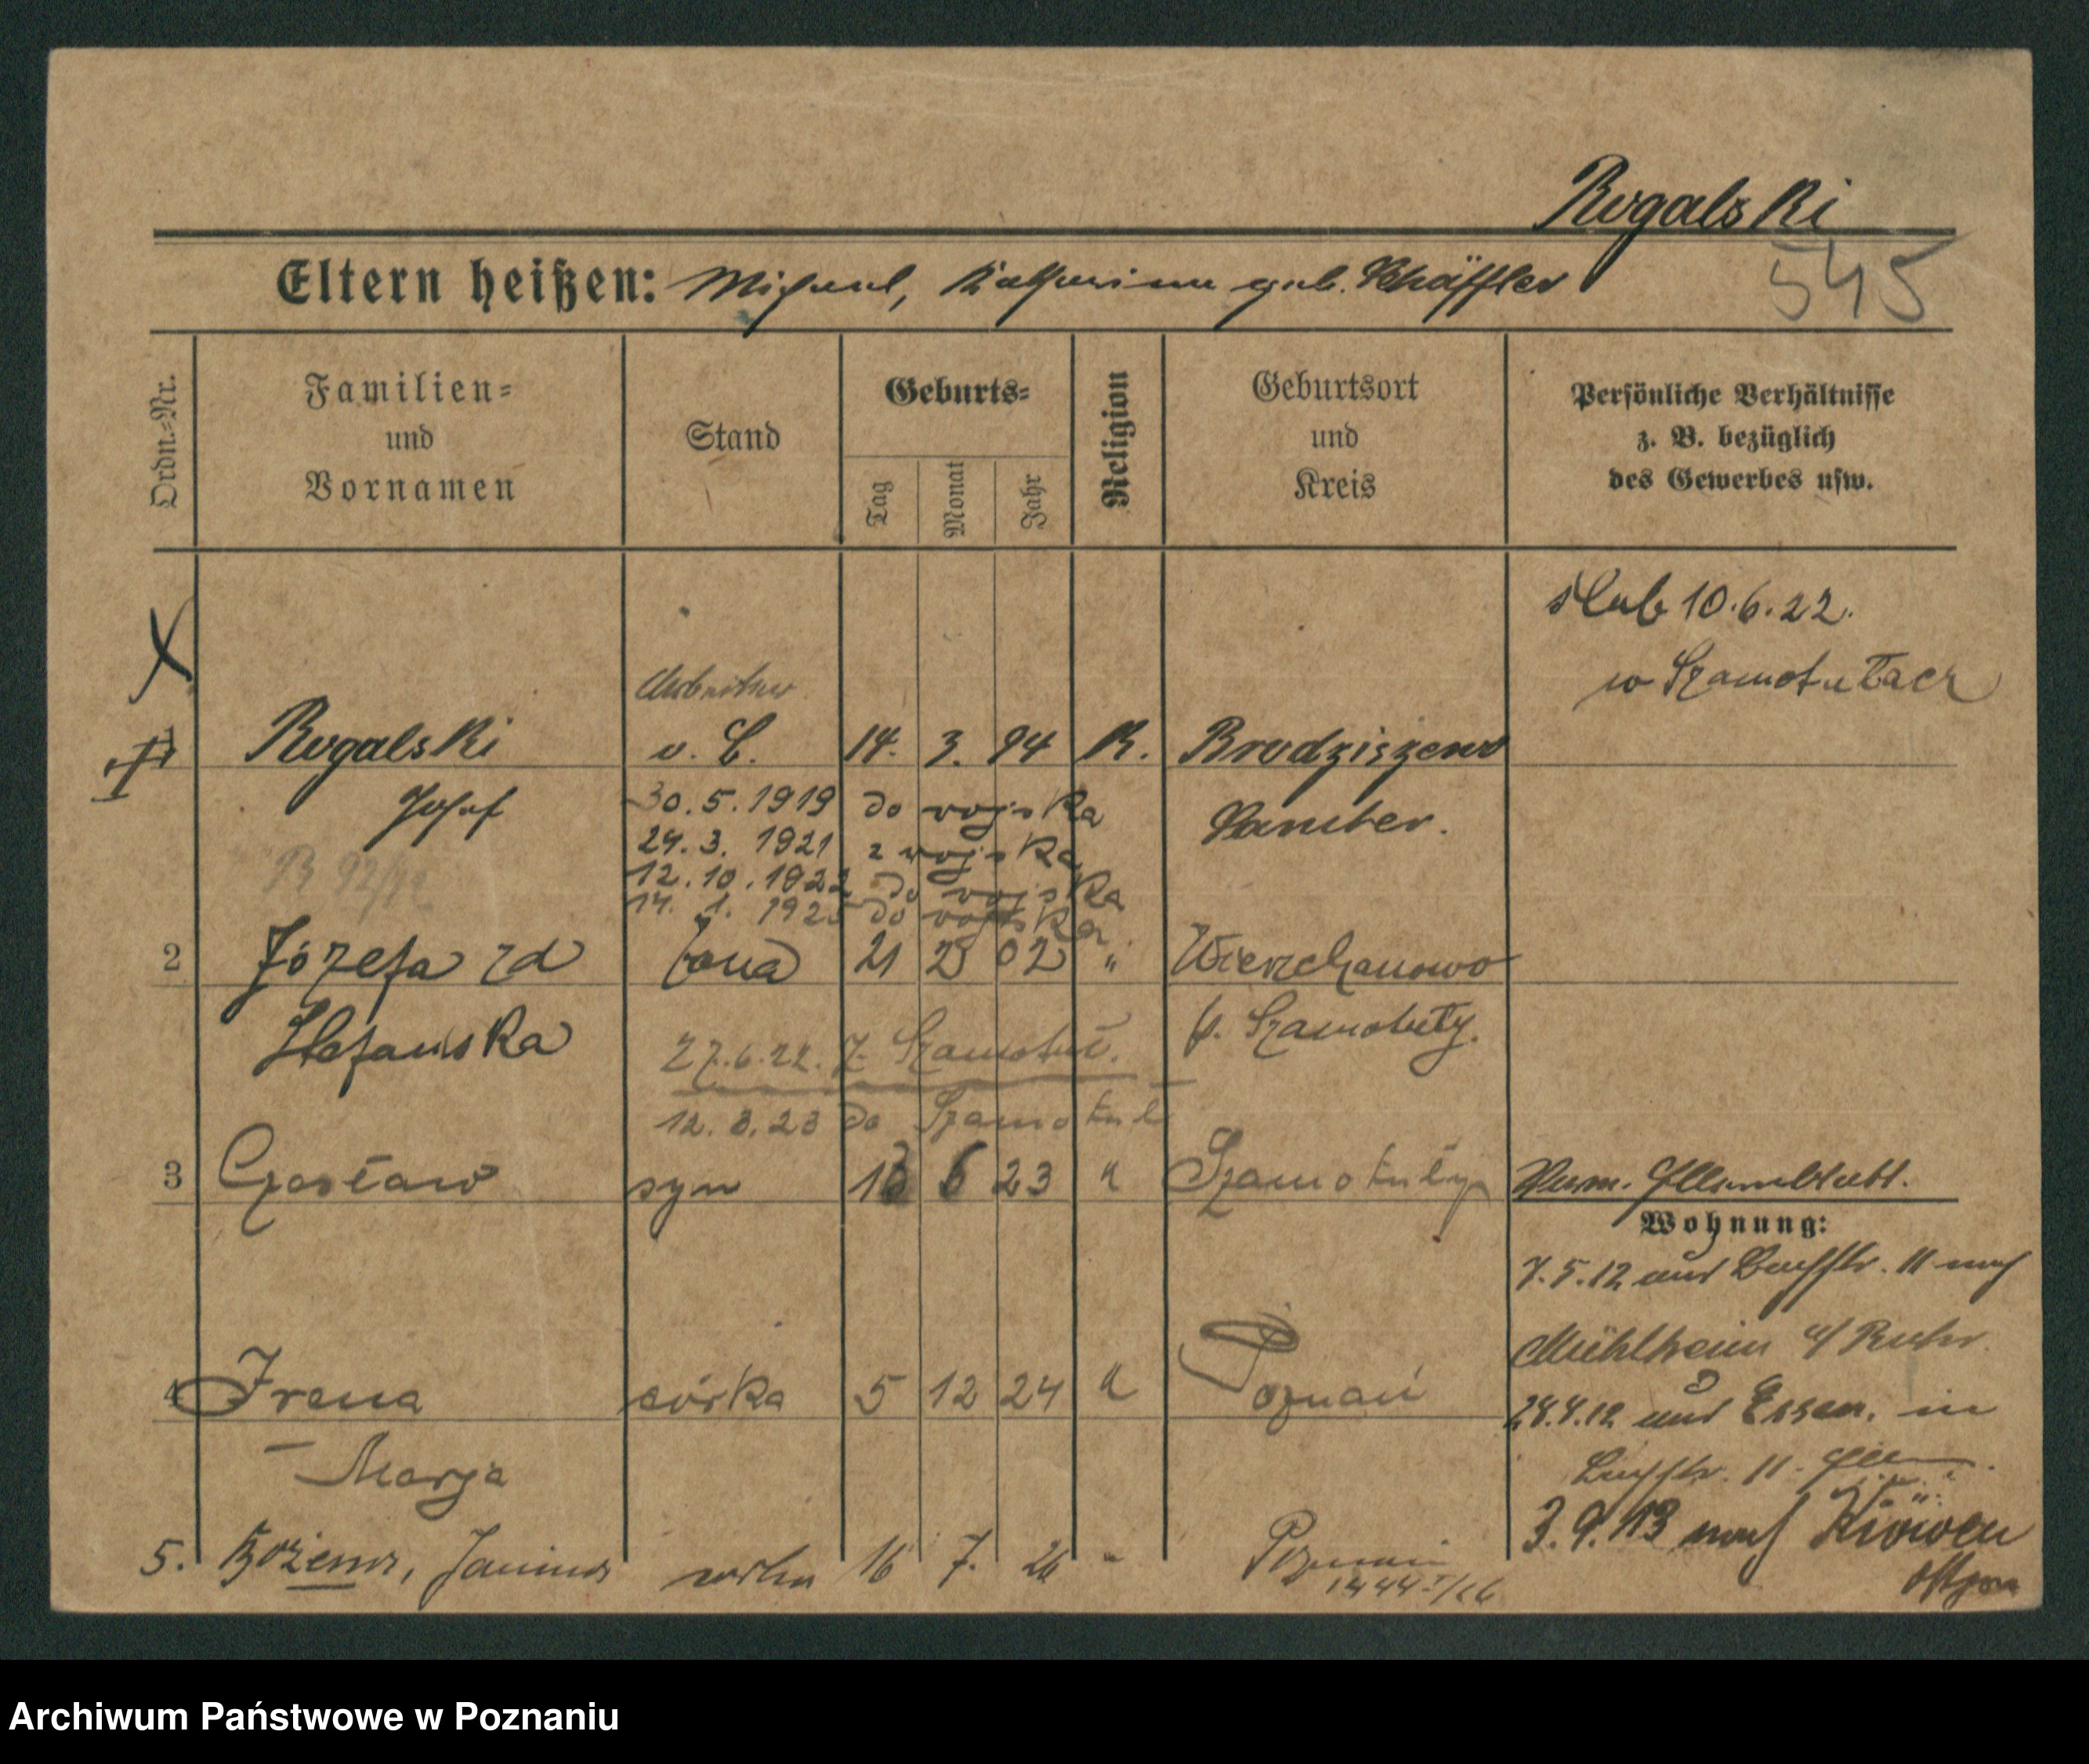 Rogalski
545
Eltern heißen: Michael, Katharina geb. Schäffler
Ordn.-Nr.
Familien- und Vornamen
Stand
Geburts-
Tag
Monat
Jahr
Religion
Geburtsort und Kreis
Persönliche Verhältnisse z. B. bezüglich des Gewerbes usw.
ślub 10.6.22.
w Szamotułach
X
Arbeiter
1 Rogalski v. C. 14. 3. 94 K. Brodziszewo
Josef 30.5.1919 do wojska Samter.
24.3. 1921 z wojska
12.10.1922 do wojska
14. 1. 1925 do wojska
2 Józefa zd żona 21 2 02 " Wierzchaczewo
Stefańska p. Szamotuły.
27.6.22. z Szamotuł.
12.3.23 do Szamotuł
3 Czesław syn 13 6 23 " Szamotuły
Wohnung:
7.5.12 aus Bachstr. 11 nach
Mühlheim a/ Ruhr.
28.8.12 aus Essen. in
Bachstr. 11.
4 Irena córka 5 12 24 " Poznań
Marja
3.9.13 nach
5. Bożena, Janina córka 16 7. 26 " Poznań
1444 I/26